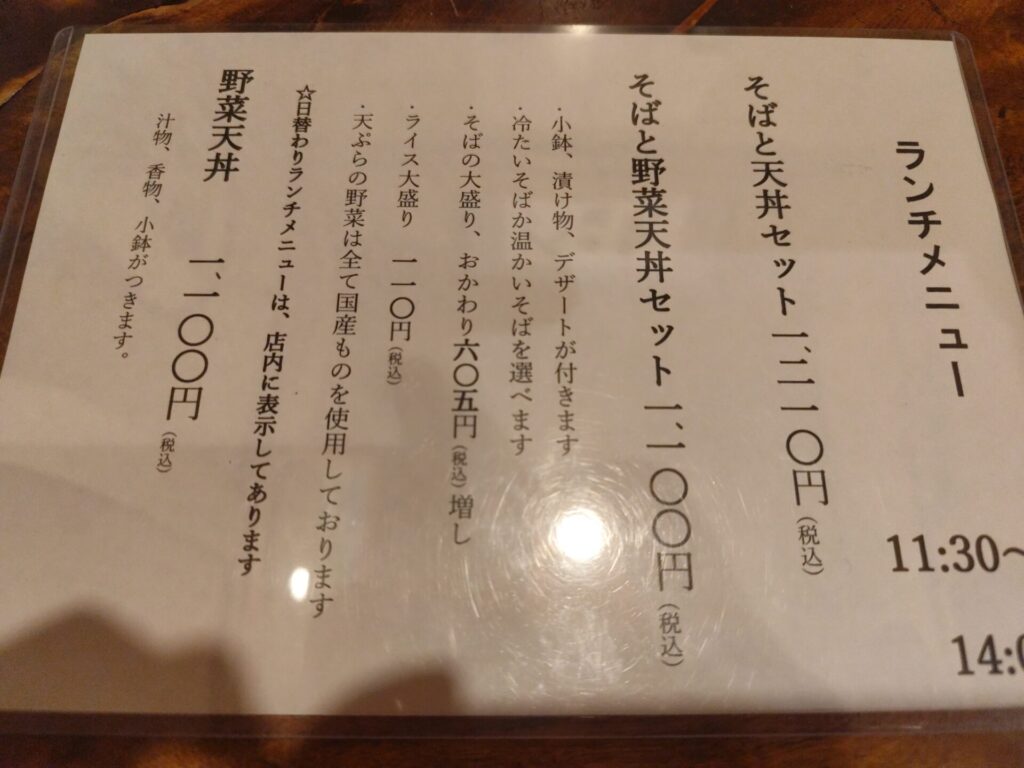 ランチメニュー
11:30〜
14:0
そばと天丼セット 一、二一〇円（税込）
そばと野菜天丼セット 一、一〇〇円（税込）
・小鉢、漬け物、デザートが付きます
・冷たいそばか温かいそばを選べます
・そばの大盛り、おかわり六〇五円（税込）増し
・ライス大盛り 一一〇円（税込）
・天ぷらの野菜は全て国産ものを使用しております
☆日替わりランチメニューは、店内に表示してあります
野菜天丼 一、一〇〇円（税込）
汁物、香物、小鉢がつきます。